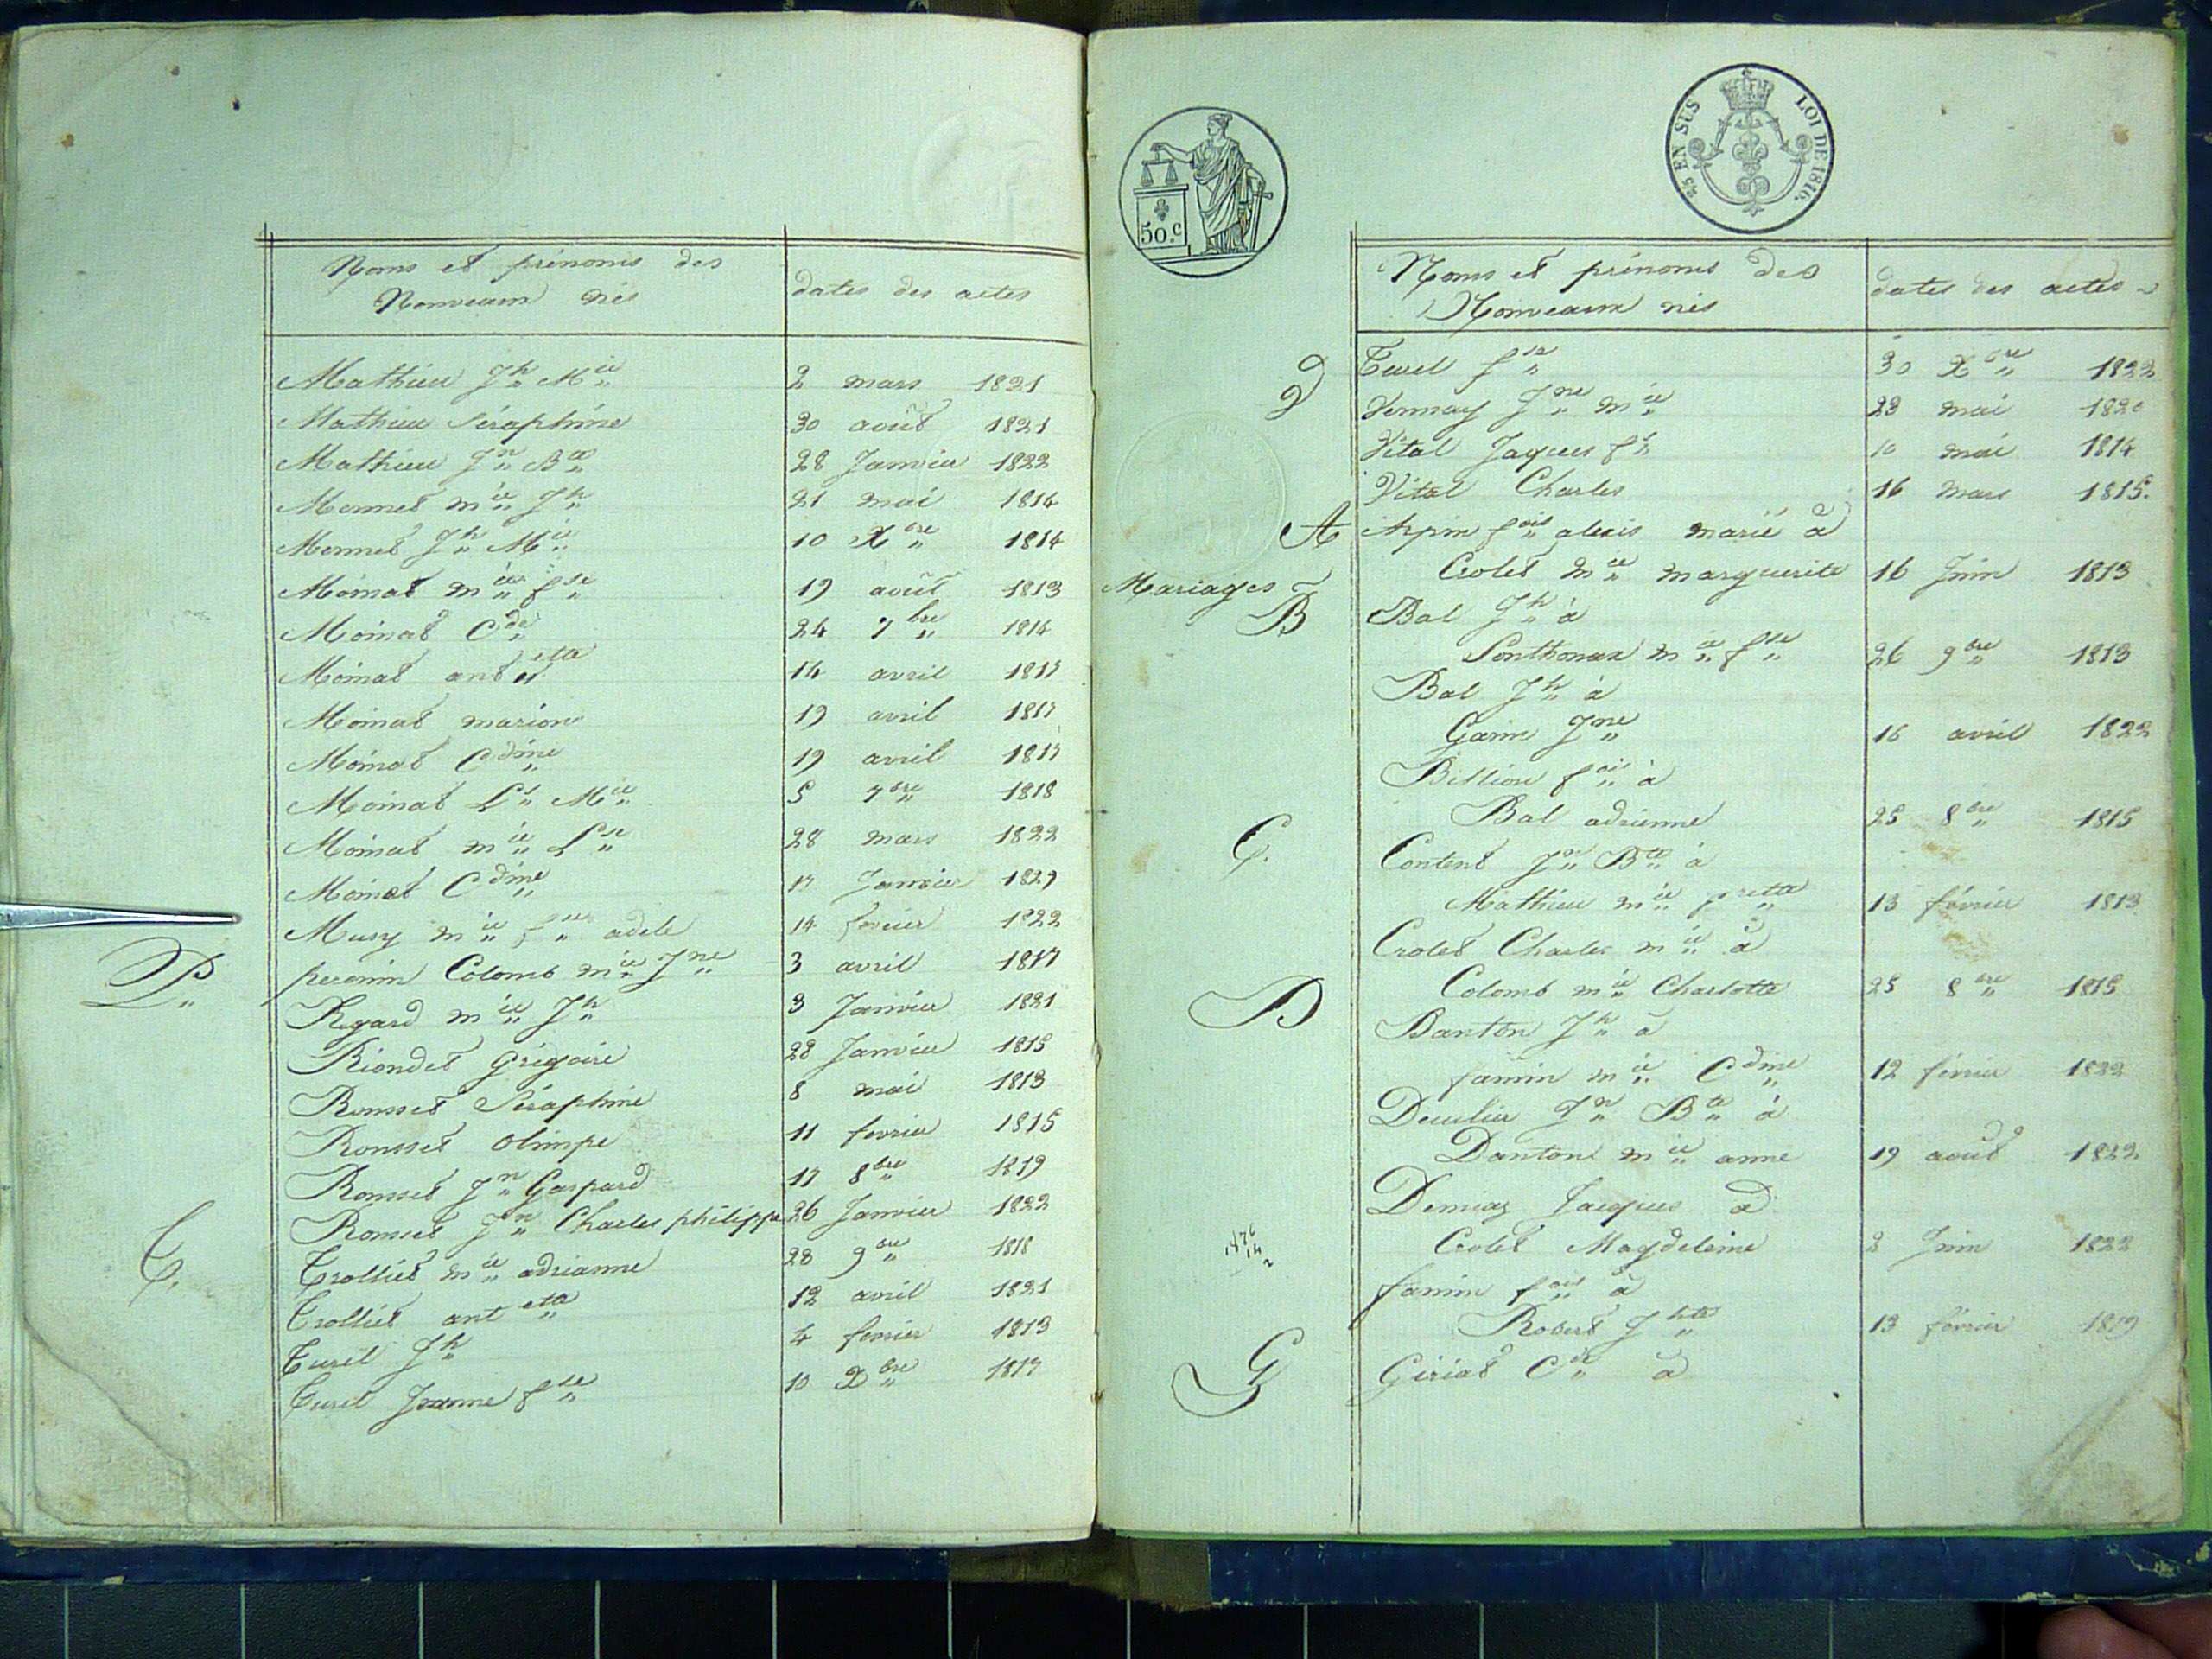 Noms et prénoms des
Nouveaux nés
dates des actes
Mathieu Jh Mie 2 mars 1821
Mathieu Séraphine 30 août 1821
Mathieu Jn Bte 28 Janvier 1822
Mermet mie Jh 21 mai 1814
Mermet Jh Mie 10 Xbre 1814
Moinat mie fse 19 août 1813
Moinat Cde 24 7bre 1814
Moinat antetta 14 avril 1817
Moinat marion 19 avril 1817
Moinat Cdine 19 avril 1817
Moinat Ls Mie 5 7bre 1818
Moinat mie Lse 28 mars 1822
Moinat Cdine 17 Janvier
Musy mie adele 14 fevrier 1822
P.
perrenin Colomb mie Jne 3 avril 1817
Regard mie Jh 3 Janvier 1821
Riondet Grégoire 28 Janvier 1815
Rousset Séraphine 8 mai 1813
Rousset Olimpe 11 fevrier 1815
Rousset Jn Gaspard 17 8bre 1819
Rousset Jn Charles philippe 26 Janvier 1822
T.
Trolliet mie adrianne 28 9bre 1818
Trolliet antetta 12 avril 1821
Turel Jh 4 fevrier 1813
Turel Jeanne fse 10 Xbre 1817
50.c
25 EN SUS LOI DE 1816.
Noms et prénoms des
Nouveaux nés
dates des actes
Turel fse 30 Xbre 1822
Vennay Jne mie 28 mai 1820
Vital Jaques fs 10 mai 1814
Vital Charles 16 mars 1815.
A
Arpin fois alexis marié à
Crolet mie marguerite 16 Juin 1813
Mariages
B
Bal Jh à
Sonthonax mie fse 26 9bre 1813
Bal Jh à
Garin Jne 16 avril 1822
Billion fois à
Bal adrienne 25 8bre 1815
C.
Content Jn Bte à
Mathieu mie prette 13 février 1813
Crolet Charles mie à
Colomb mie Charlotte 25 8bre 1815
D
Danton Jh à
famin mie Cdine 12 février 1822
Jn Bte à
Danton mie anne 19 août 1822
Demias Jacques à
Crolet Magdeleine 2 Juin 1822
famin fois à
Robert Jhte 13 février 1819
G
Giriat Cde à